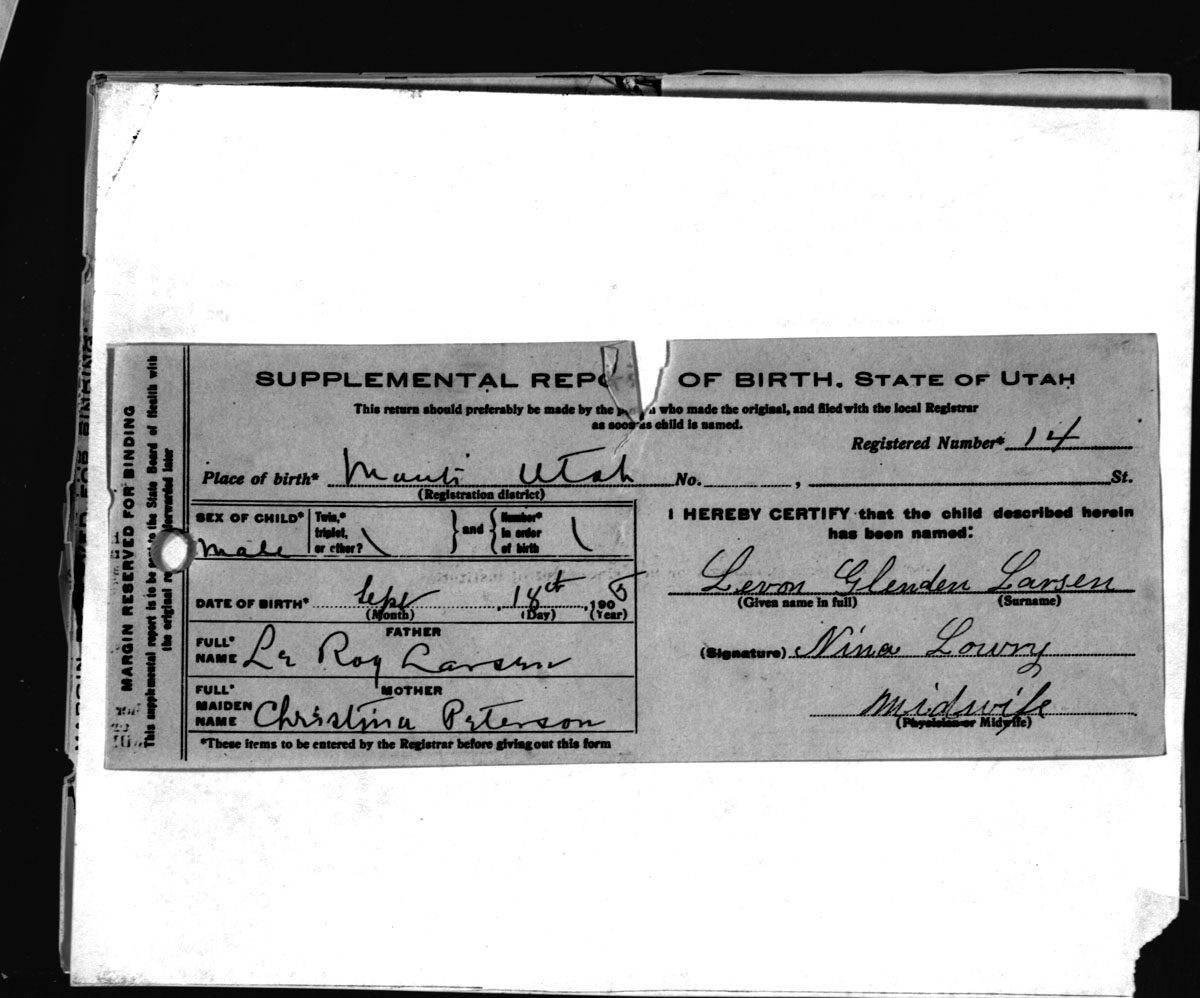 SUPPLEMENTAL REPO OF BIRTH. STATE OF UTAH
This return should preferably be made by the p n who made the original, and filed with the local Registrar
as soon as child is named.
Registered Number* 14
Place of birth* Manti Utah No. , St.
(Registration district)
SEX OF CHILD* Male
Twin,* triplet, or other? \ } and { Number* in order of birth \
DATE OF BIRTH* Sept 18th, 1905
(Month) (Day) (Year)
FATHER
FULL* NAME Le Roy Larsen
MOTHER
FULL* MAIDEN NAME Christina Peterson
*These items to be entered by the Registrar before giving out this form
I HEREBY CERTIFY that the child described herein
has been named:
Levon Glenden Larsen
(Given name in full) (Surname)
(Signature) Nina Lowry
Midwife
(Physician or Midwife)
MARGIN RESERVED FOR BINDING
This supplemental report is to be sent to the State Board of Health with
the original re forwarded later